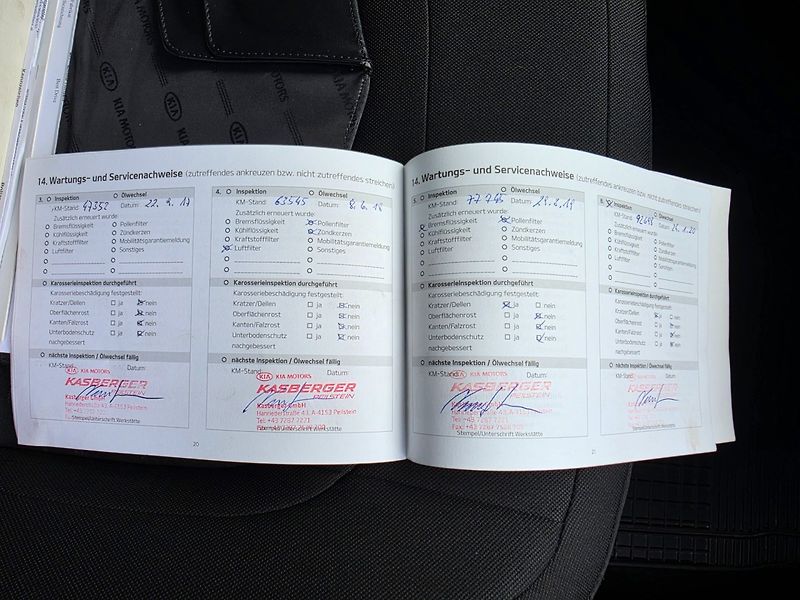 KIA MOTORS
KIA MOTORS
14. Wartungs- und Servicenachweise (zutreffendes ankreuzen bzw. nicht zutreffendes streichen)
3. Inspektion Ölwechsel
KM-Stand: 47352 Datum:
Zusätzlich erneuert wurde:
Bremsflüssigkeit Pollenfilter
Kühlflüssigkeit Zündkerzen
Kraftstofffilter Mobilitätsgarantiemeldung
Luftfilter Sonstiges
Karosserieinspektion durchgeführt
Karosseriebeschädigung festgestellt:
Kratzer/Dellen ja nein
Oberflächenrost ja nein
Kanten/Falzrost ja nein
Unterbodenschutz ja nein
nachgebessert
nächste Inspektion / Ölwechsel fällig
KM-Stand: Datum:
KIA MOTORS
KASBERGER
PEILSTEIN
Kasberger GmbH
Hanriederstraße 43, A-4153 Peilstein
Stempel/Unterschrift Werkstätte
4. Inspektion Ölwechsel
KM-Stand: 63545 Datum: 8.6.18
Zusätzlich erneuert wurde:
Bremsflüssigkeit Pollenfilter
Kühlflüssigkeit Zündkerzen
Kraftstofffilter Mobilitätsgarantiemeldung
Luftfilter Sonstiges
Karosserieinspektion durchgeführt
Karosseriebeschädigung festgestellt:
Kratzer/Dellen ja nein
Oberflächenrost ja nein
Kanten/Falzrost ja nein
Unterbodenschutz ja nein
nachgebessert
nächste Inspektion / Ölwechsel fällig
KM-Stand: Datum:
KIA MOTORS
KASBERGER
PEILSTEIN
Kasberger GmbH
Hanriederstraße 43, A-4153 Peilstein
Tel: +43 7287 7221
Stempel/Unterschrift Werkstätte
20
14. Wartungs- und Servicenachweise (zutreffendes ankreuzen bzw. nicht zutreffendes streichen)
5. Inspektion Ölwechsel
KM-Stand: 77745 Datum:
Zusätzlich erneuert wurde:
Bremsflüssigkeit Pollenfilter
Kühlflüssigkeit Zündkerzen
Kraftstofffilter Mobilitätsgarantiemeldung
Luftfilter Sonstiges
Karosserieinspektion durchgeführt
Karosseriebeschädigung festgestellt:
Kratzer/Dellen ja nein
Oberflächenrost ja nein
Kanten/Falzrost ja nein
Unterbodenschutz ja nein
nachgebessert
nächste Inspektion / Ölwechsel fällig
KM-Stand: Datum:
KIA MOTORS
KASBERGER
PEILSTEIN
Hanriederstraße 43, A-4153 Peilstein
Stempel/Unterschrift Werkstätte
6. Inspektion Ölwechsel
KM-Stand: Datum:
Zusätzlich erneuert wurde:
Bremsflüssigkeit Pollenfilter
Kühlflüssigkeit Zündkerzen
Kraftstofffilter Mobilitätsgarantiemeldung
Luftfilter Sonstiges
Karosserieinspektion durchgeführt
Karosseriebeschädigung festgestellt:
Kratzer/Dellen ja nein
Oberflächenrost ja nein
Kanten/Falzrost ja nein
Unterbodenschutz ja nein
nachgebessert
nächste Inspektion / Ölwechsel fällig
KM-Stand: Datum:
KASBERGER
PEILSTEIN
Stempel/Unterschrift Werkstätte
21